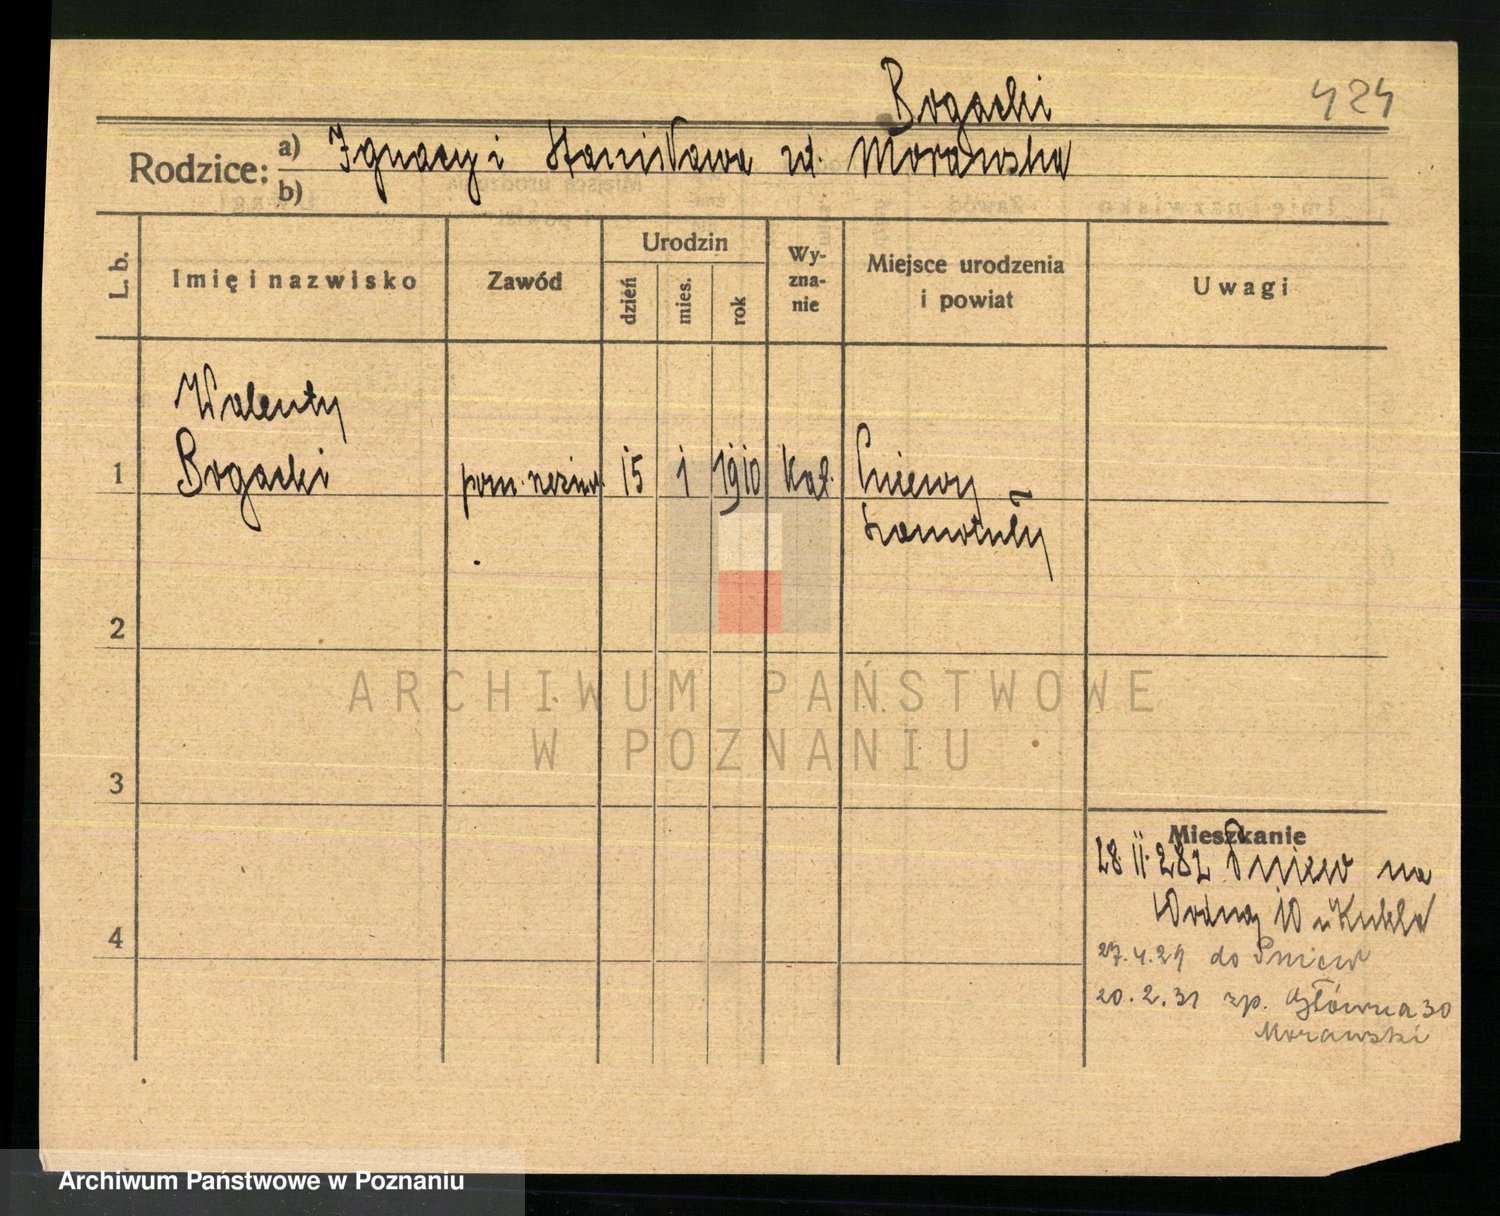 Bogacki 424
Rodzice: a) Ignacy i Stanisława ur. Morawska
b)
L. b. Imię i nazwisko Zawód Urodzin dzień mies. rok Wyznanie Miejsce urodzenia i powiat Uwagi
Walenty
1 Bogacki pom. 15 1 1910 kat. Pniewy
Szamotuły
2
ARCHIWUM PAŃSTWOWE
W POZNANIU
3
Mieszkanie
28 II 28 z Pniew na
Wodną 10 u
4
27.4.29 do Pniew
20.2.31 zp. Główna 30
Morawski
Archiwum Państwowe w Poznaniu